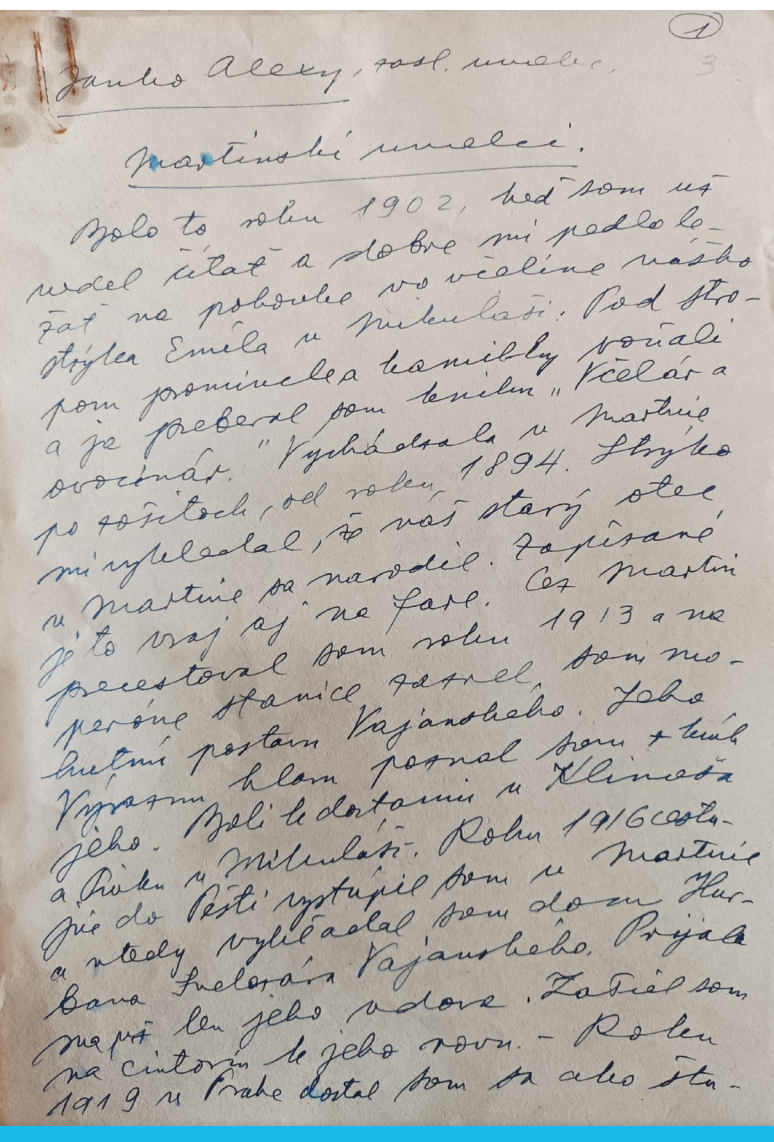 1
Janko Alexy, zasl. umelec,
3
Martinskí umelci.
Bolo to roku 1902, keď som už
vedel čítať a dobre mi padlo le-
žať na pohovke vo včelíne nášho
strýka Emila v Mikuláši. Pod stro-
pom promincle a kamilky voňali
a ja preberal som knihu „Včelár a
ovocinár." Vychádzala v Martine
po zošitoch, od roku 1894. Strýko
mi vykladal, že náš starý otec
v Martine sa narodil. Zapísané
je to vraj aj na fare. Cez Martin
precestoval som roku 1913 a na
peróne stanice zazrel som mo-
hutnú postavu Vajanského. Jeho
výraznú hlavu poznal som z kníh
jeho. Boli k dostaniu u Klimeša
a Pivku v Mikuláši. Roku 1916 cestu-
júc do Pešti vystúpil som v Martine
a vtedy vyhľadal som dom Hur-
bana Svetozára Vajanského. Prijala
ma už len jeho vdova. Zašiel som
na cintorín k jeho rovu. – Roku
1919 v Prahe dostal som sa ako štu-